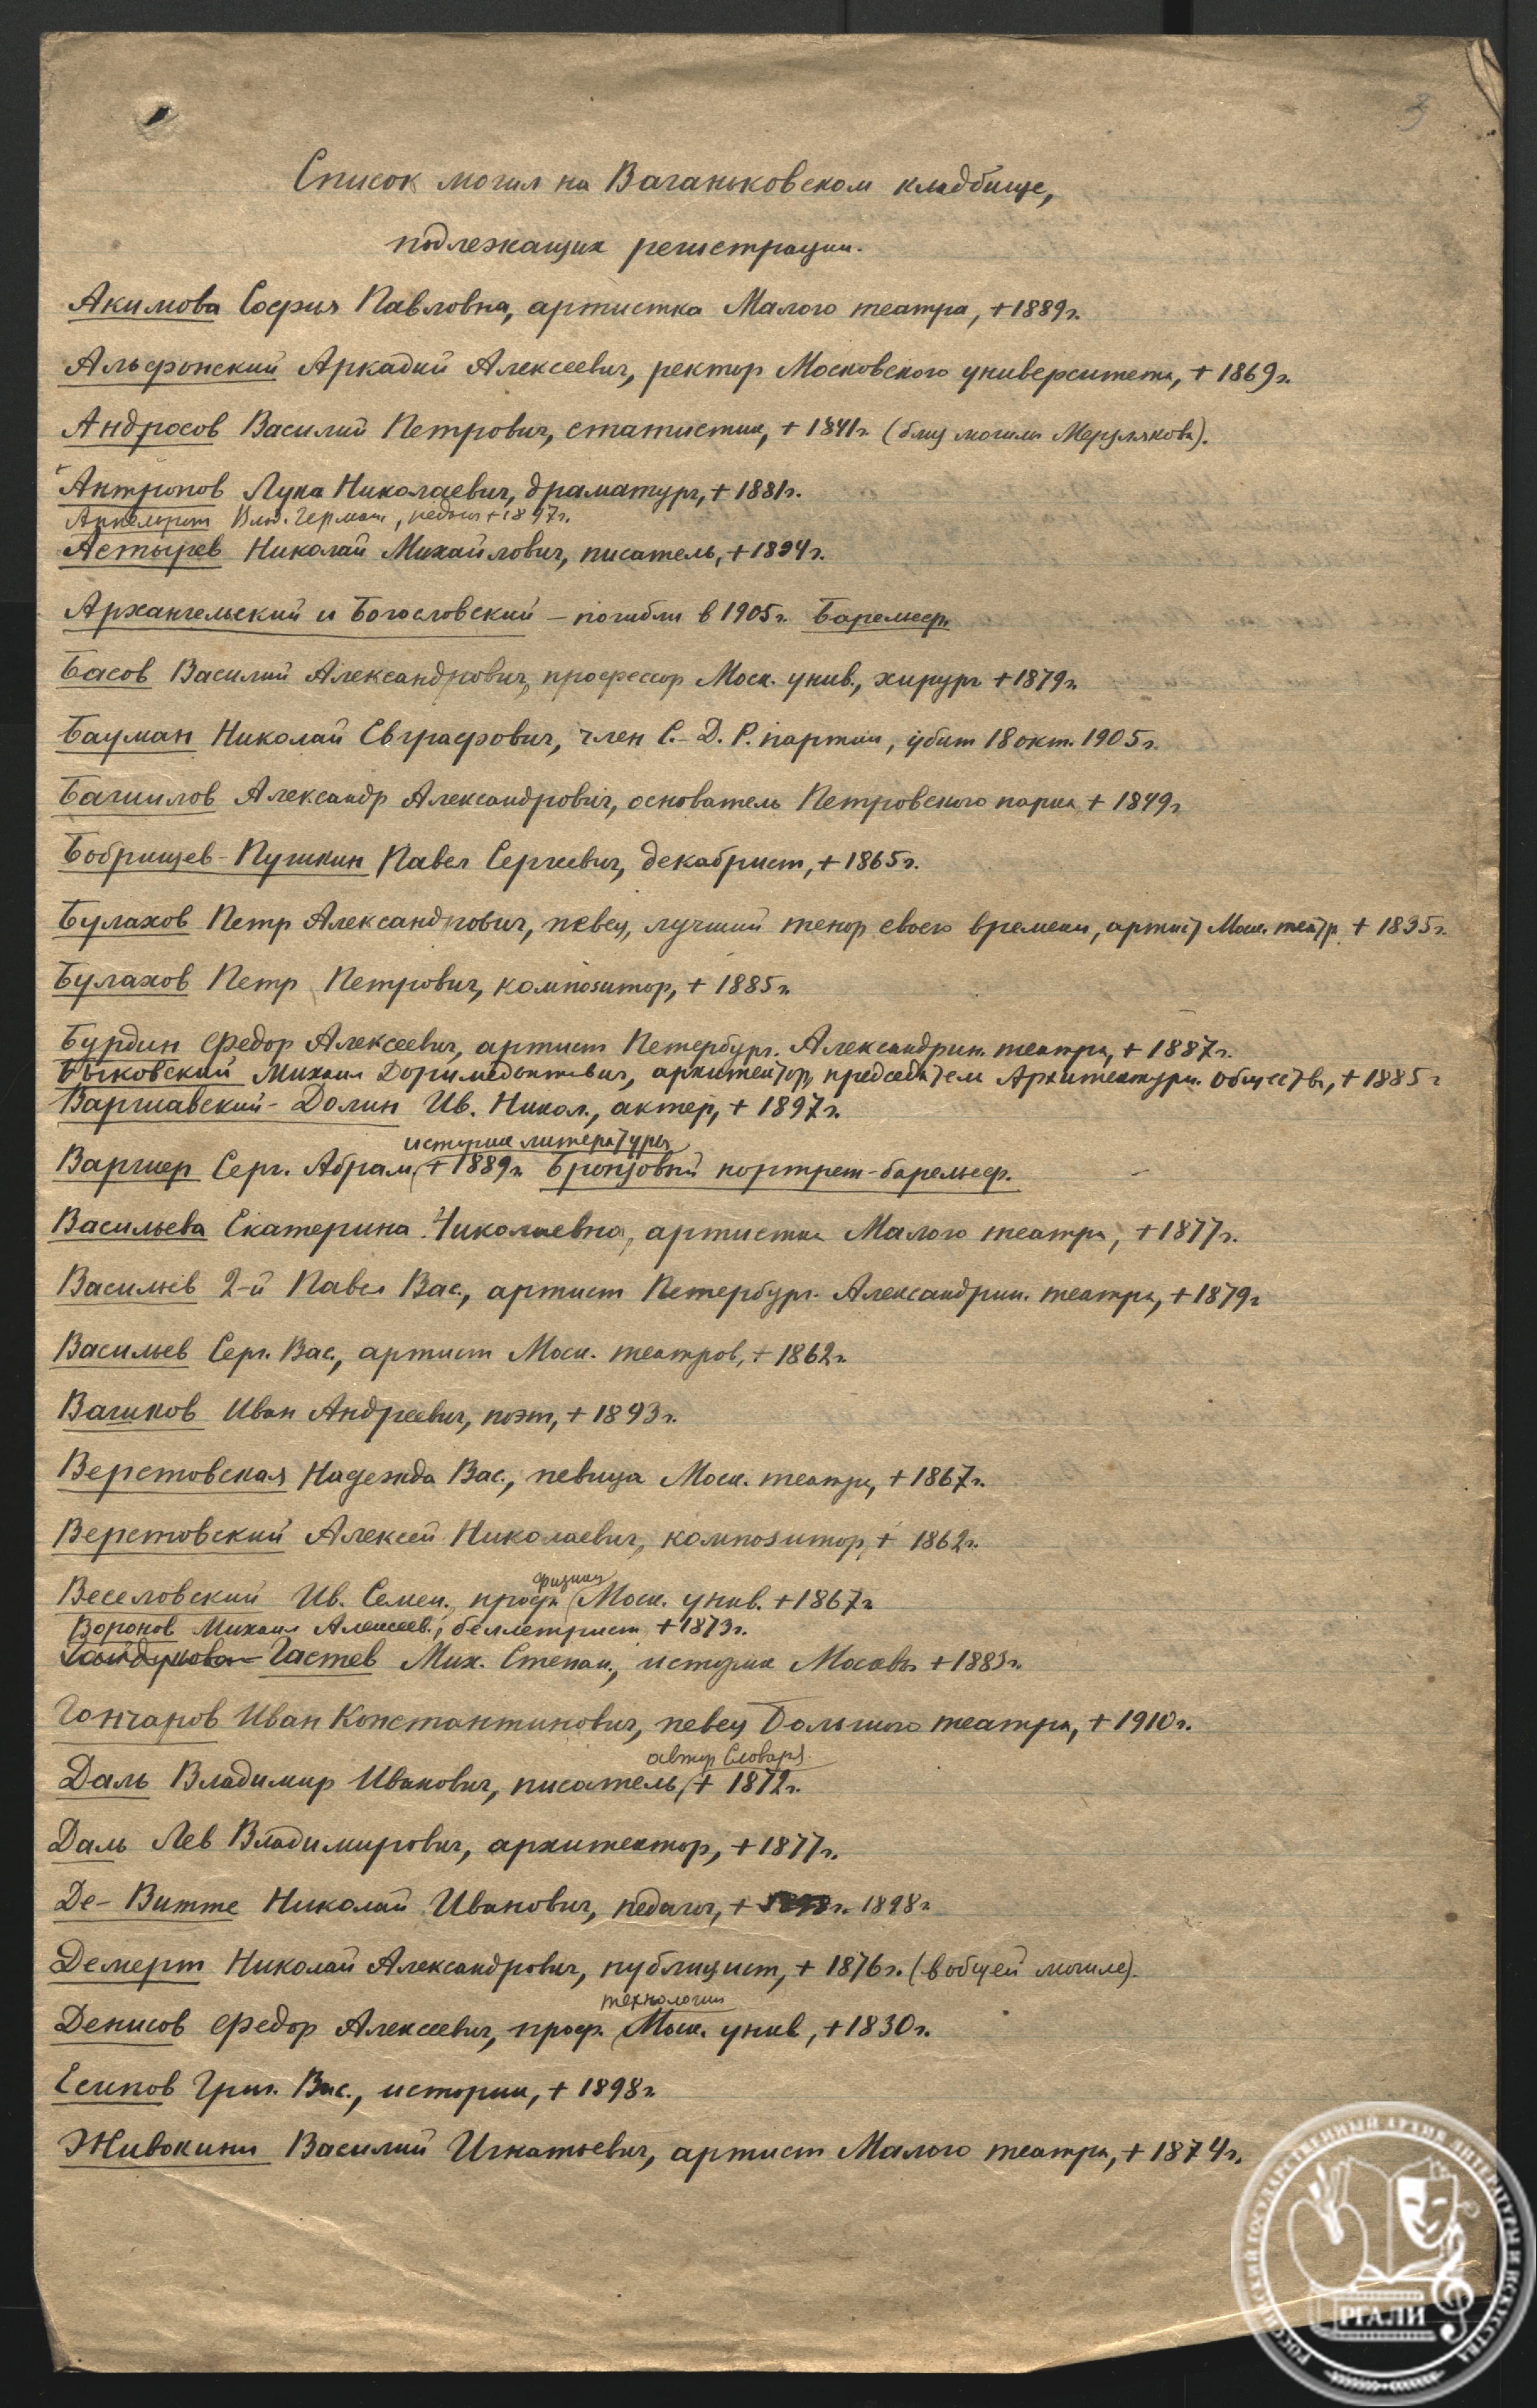 3
Список могил на Ваганьковском кладбище,
подлежащих регистрации.
Акимова София Павловна, артистка Малого театра, +1889г.
Альфонский Аркадий Алексеевич, ректор Московского университета, + 1869г.
Андросов Василий Петрович, статистик, + 1841г. (близ могилы Мерзлякова).
Антропов Лука Николаевич, драматург, + 1881г.
Аппельрот Влад. Герман., педагог +1897г.
Астырев Николай Михайлович, писатель, +1894г.
Архангельский и Богословский – погибли в 1905г. Барельеф.
Басов Василий Александрович, профессор Моск. унив., хирург +1879г.
Бауман Николай Евграфович, член С.-Д. Р. партии, убит 18 окт. 1905г.
Башилов Александр Александрович, основатель Петровского парка + 1849г.
Бобрищев-Пушкин Павел Сергеевич, декабрист, +1865г.
Булахов Петр Александрович, певец, лучший тенор своего времени, артист Моск. театр. + 1835г.
Булахов Петр Петрович, композитор, + 1885г.
Бурдин Федор Алексеевич, артист Петербург. Александрин. театра, + 1887г.
Быковский Михаил Доримедонтович, архитектор, председатель Архитектурн. общества, +1885г
Варшавский-Долин Ив. Никол., актер, + 1897г.
историк литературы
Варшер Серг. Абрам, + 1889г. Бронзовый портрет-барельеф.
Васильева Екатерина Николаевна, артистка Малого театра, +1877г.
Васильев 2-й Павел Вас., артист Петербург. Александрин. театра, +1879г
Васильев Серг. Вас., артист Моск. театров, + 1862г.
Вашков Иван Андреевич, поэт, + 1893г.
Верстовская Надежда Вас., певица Моск. театра, +1867г.
Верстовский Алексей Николаевич, композитор, + 1862г.
физики
Веселовский Ив. Семен., проф. Моск. унив. +1867г.
Воронов Михаил Алексеев., беллетрист, +1873г.
Гайдукова Гастев Мих. Степан., историк Москвы +1883г.
Гончаров Иван Константинович, певец Большого театра, + 1910г.
автор Словаря.
Даль Владимир Иванович, писатель, + 1872г.
Даль Лев Владимирович, архитектор, + 1877г.
Де-Витте Николай Иванович, педагог, + 1898г
Демерт Николай Александрович, публицист, + 1876г. (в общей могиле).
технологии
Денисов Федор Алексеевич, проф. Моск. унив., +1830г.
Есипов Григ. Вас., историк, + 1898г.
Живокини Василий Игнатьевич, артист Малого театра, + 1874г.
РОССИЙСКИЙ ГОСУДАРСТВЕННЫЙ АРХИВ ЛИТЕРАТУРЫ И ИСКУССТВА
РГАЛИ